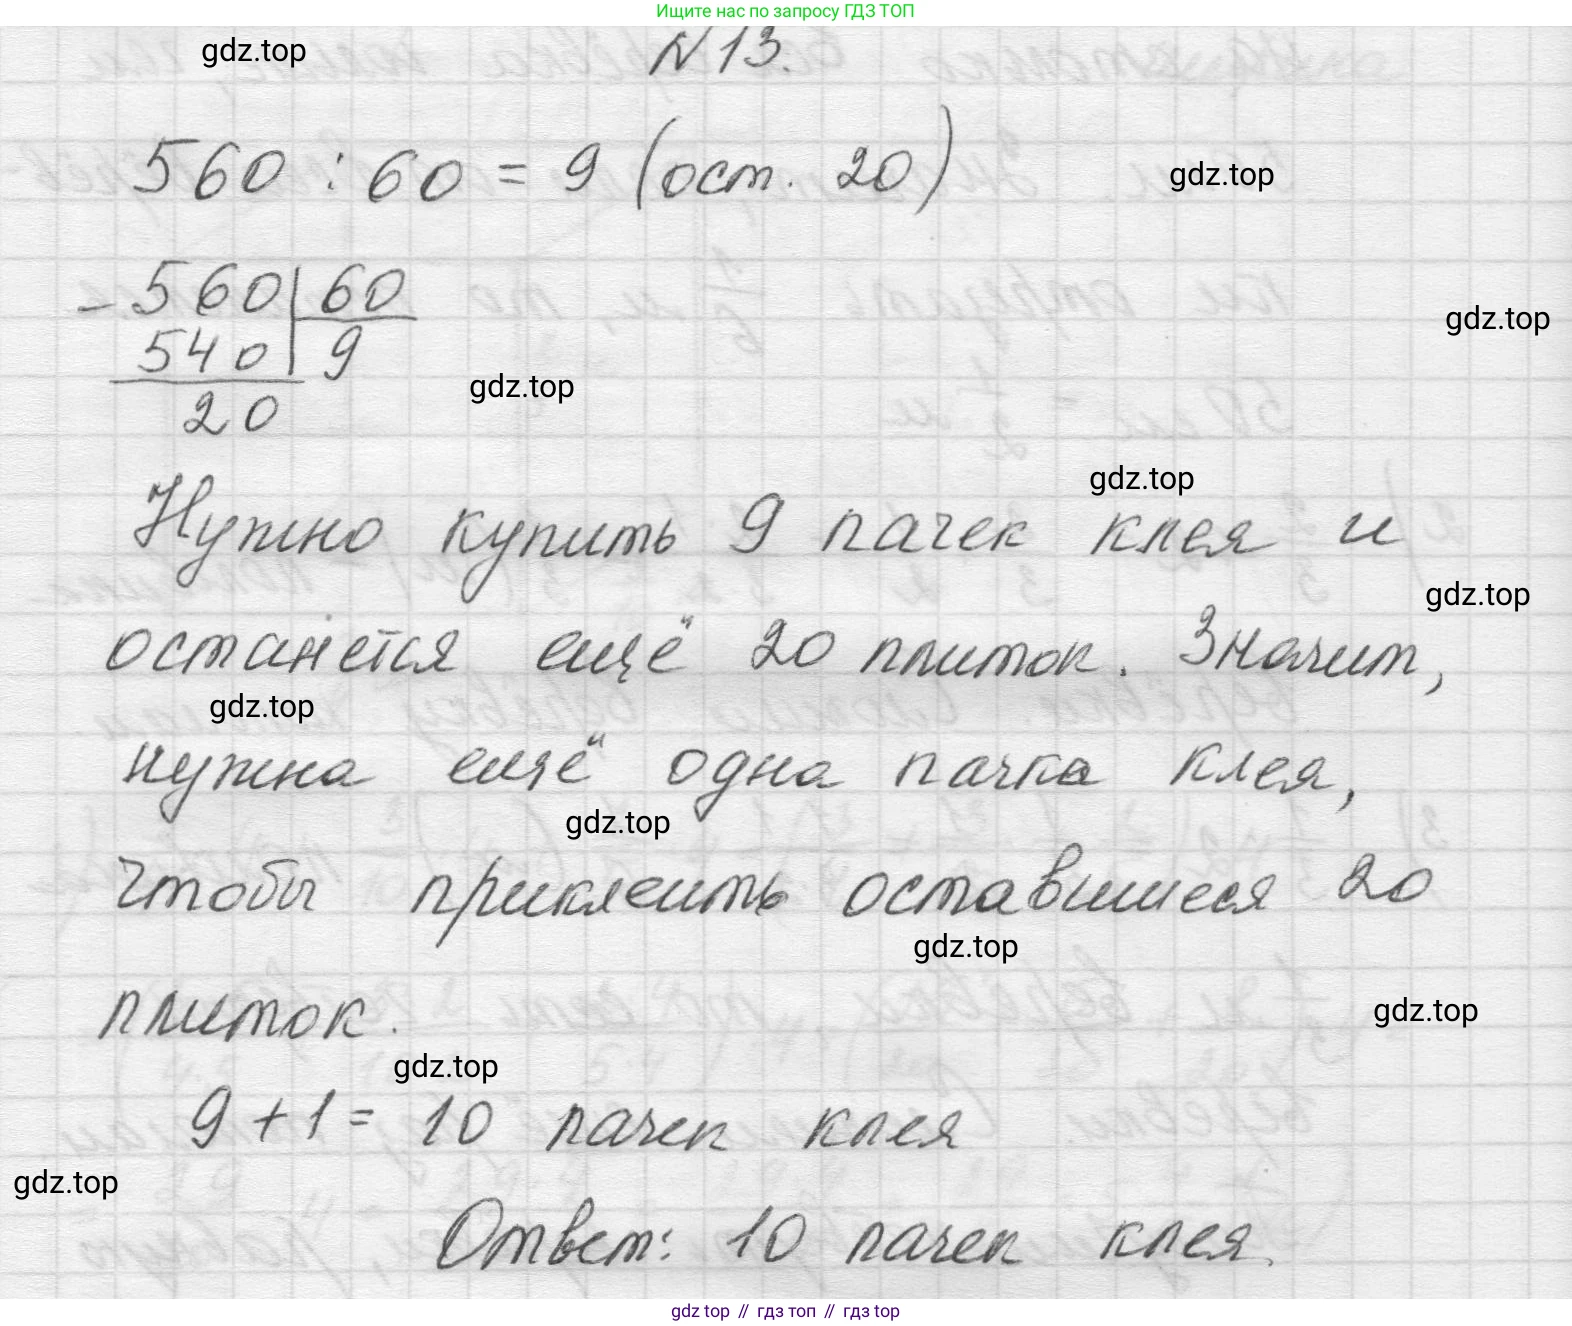 Ищите нас по запросу ГДЗ ТОП
gdz.top
N 13.
560 : 60 = 9 (ост. 20)
gdz.top
- 560 | 60
gdz.top
540 | 9
gdz.top
20
gdz.top
Нужно купить 9 пачек клея и
gdz.top
останется ещё 20 плиток. Значит,
gdz.top
нужна ещё одна пачка клея,
gdz.top
чтобы приклеить оставшиеся 20
gdz.top
плиток.
gdz.top
gdz.top
9 + 1 = 10 пачек клея
gdz.top
Ответ: 10 пачек клея.
gdz top // гдз топ // гдз top